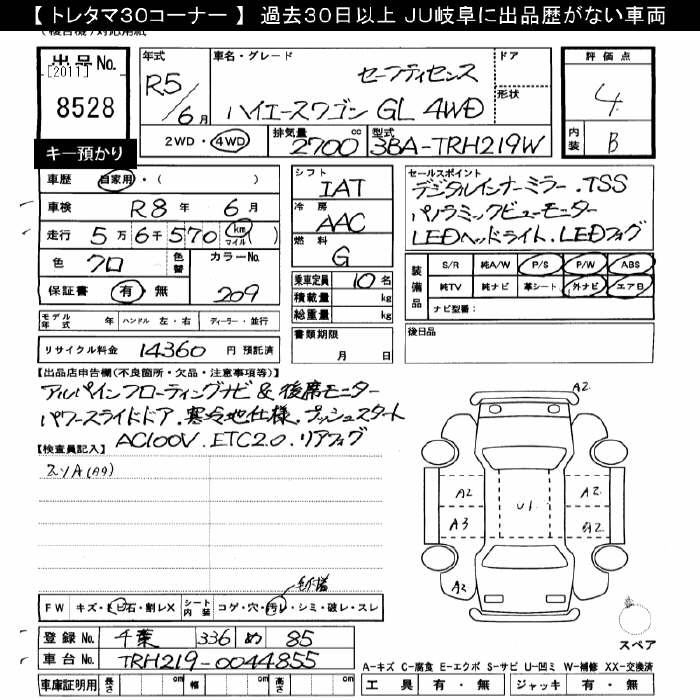 【 トレタマ30コーナー 】 過去30日以上 JU岐阜に出品歴がない車両
出品No.
[2011]
8528
キー預かり
年式
R5/6月
車名・グレード
セーフティセンス
ハイエースワゴン GL 4WD
ドア
形状
2WD・4WD
排気量 2700 cc
型式 3BA-TRH219W
評価点
4
内装 B
車歴 自家用・( )
車検 R8年 6月
走行 5万6千570 (km マイル)
色 クロ 色替
カラーNo. 209
保証書 有・無
シフト IAT
冷房 AAC
燃料 G
乗車定員 10名
積載量 kg
総重量 kg
セールスポイント
デジタルインナーミラー.TSS
パノラミックビューモニター
LEDヘッドライト.LEDフォグ
装備品
S/R 純A/W P/S P/W ABS
純TV 純ナビ 革シート 外ナビ エアB
ナビ型番:
モデル年式 年 ハンドル 左・右 ディーラー・並行
リサイクル料金 14360 円 預託済
書類期限 月 日
後日品
【出品店申告欄(不良箇所・欠品・注意事項等)】
アルパインフローティングナビ & 後席モニター
パワースライドドア.寒冷地仕様.プッシュスタート
AC100V.ETC2.0.リアフォグ
【検査員記入】
スリA(A9)
A2
A2
A3
U1
A2
A2
FW キズ・トビ石・割レX シート内装 コゲ・穴・汚レ・シミ・破レ・スレ
登録No. 千葉 336 め 85
車台No. TRH219-0044855
車庫証明用 長さ cm 幅 cm 高さ cm
スペア
A-キズ C-腐食 E-エクボ S-サビ U-凹ミ W-補修 XX-交換済
工具 有・無 ジャッキ 有・無